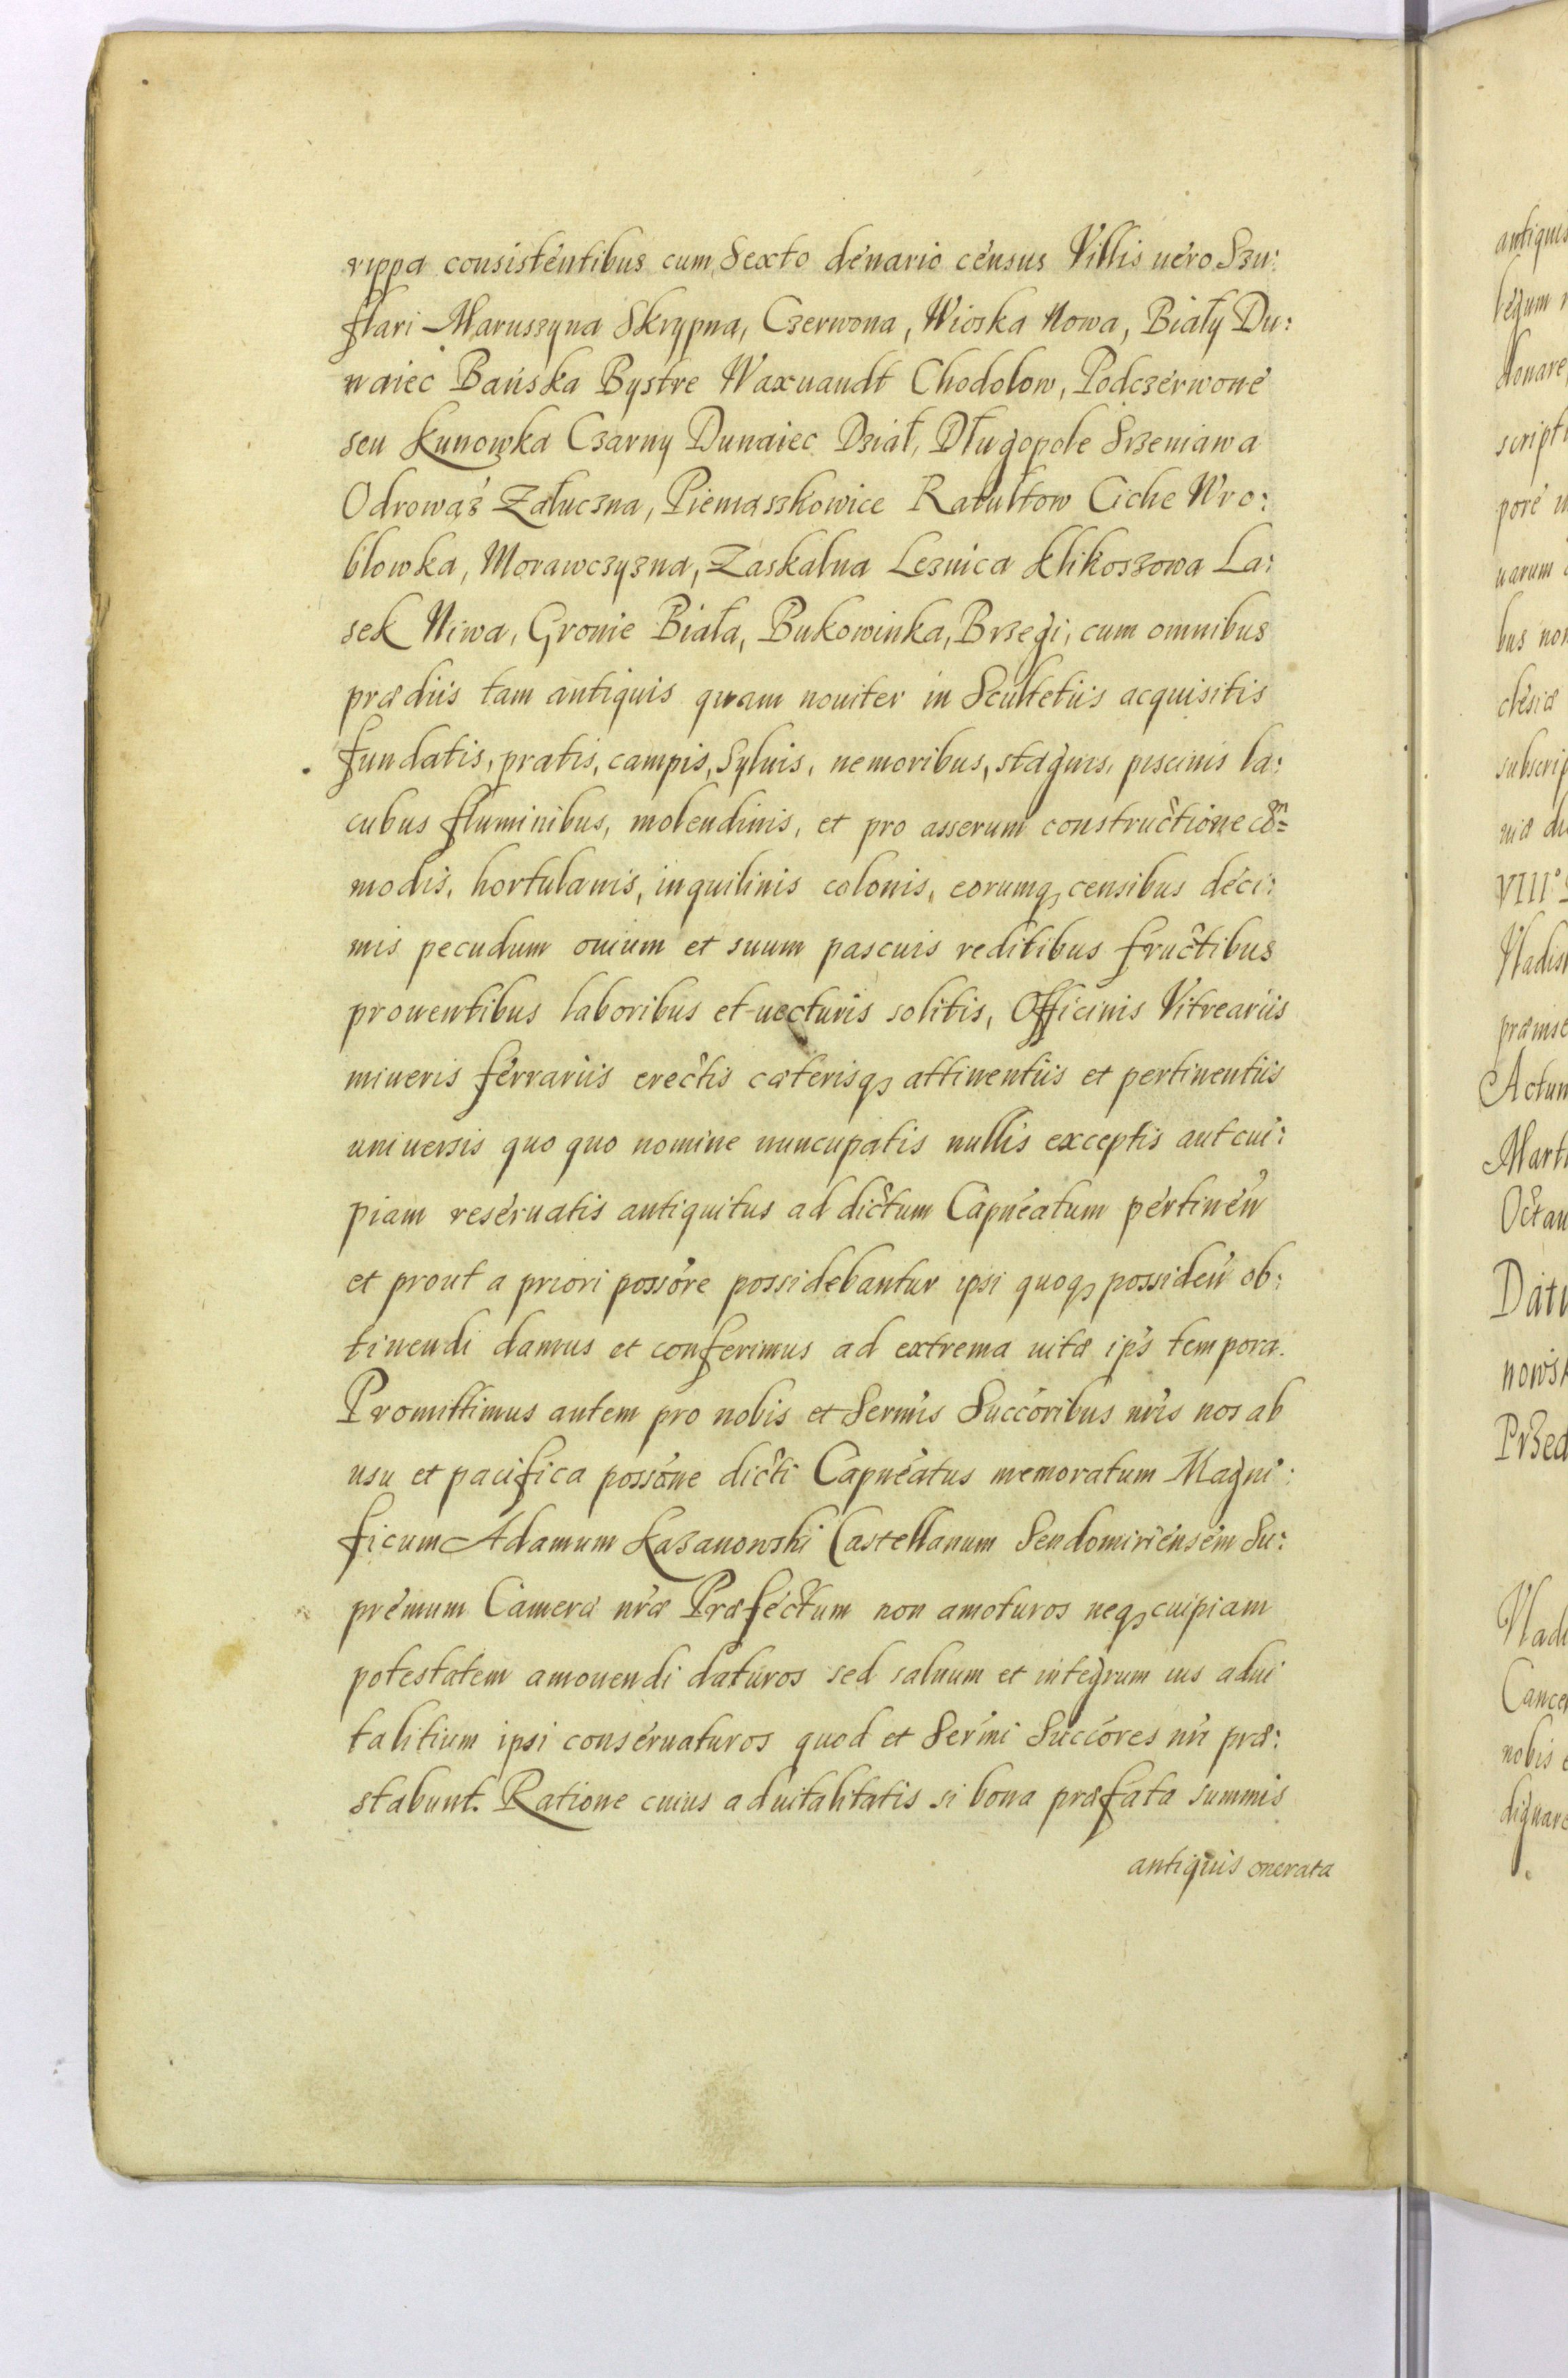 rippa consistentibus cum Sexto denario census Villis uero Szu:
flari Maruszyna Skrzypna, Czerwona, Wioska Nowa, Biały Du:
naiec Bańska Bystre Waxuandt Chodolow, Podczerwone
seu Kunowka Czarny Dunaiec Dział, Długopole Srzeniawa
Odrowąż Załuczna, Piemaszkowice Ratułtow Ciche Wro:
blowka, Morawczyzna, Zaskalna Leznica Klikoszowa La:
sek Niwa, Gronie Biała, Bukowinka, Brzegi, cum omnibus
prædiis tam antiquis quam nouiter in Scultetiis acquisitis
fundatis, pratis, campis, Syluis, nemoribus, stagnis, piscinis la:
cubus fluminibus, molendinis, et pro asserum constructione com̃=
modis, hortulanis, inquilinis colonis, eorumq₃ censibus deci:
mis pecudum ouium et suum pascuis reditibus fructibus
prouentibus laboribus et uecturis solitis, Officinis Vitreariis
mineris ferrariis erectis cæterisq₃ attinentiis et pertinentiis
uniuersis quo quo nomine nuncupatis nullis exceptis aut cui:
piam reseruatis antiquitus ad dictum Capneatum pertineñ
et prout a priori possore possidebantur ipsi quoq₃ possideñ ob:
tinendi damus et conferimus ad extrema uitæ ip̃s tempora.
Promittimus autem pro nobis et Serm̃is Succoribus nr̃is nos ab
usu et pacifica possõne dicti Capneatus memoratum Magni:
ficum Adamum Kazanowski Castellanum Sendomiriensem Su:
premum Cameræ nr̃æ Præfectum non amoturos neq₃ cuipiam
potestatem amouendi daturos sed saluum et integrum ius adui
talitium ipsi conseruaturos quod et Serm̃i Succores nr̃i præ:
stabunt. Ratione cuius aduitalitatis si bona præfata summis
antiquis onerata